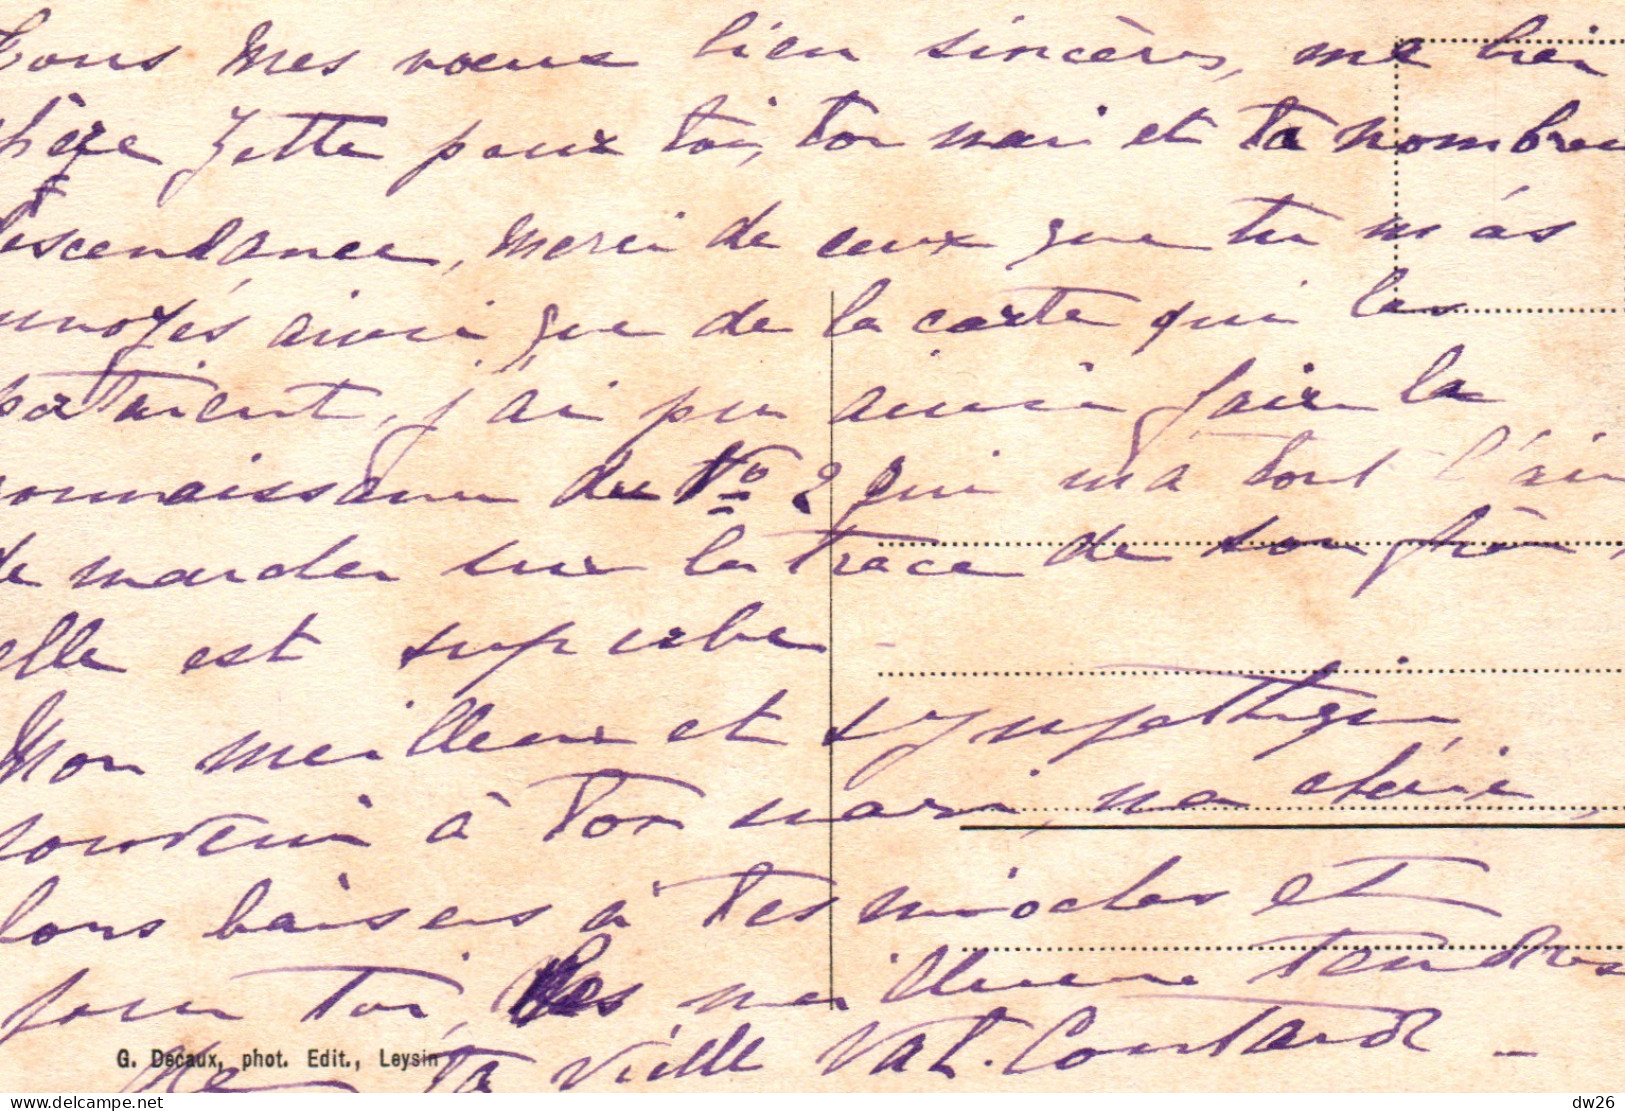 Tous mes vœux bien sincères, ma bien
chère Jette pour toi, ton mari et ta nombreu
descendance, merci de ceux que tu m'as
envoyés ainsi que de la carte qui les
portaient, j'ai pu ainsi faire la
connaissance du No 2 qui m'a tout l'air
de marcher sur la trace de son frère,
elle est superbe
Mon meilleur et sympathique
souvenir à ton mari, ma chérie,
bons baisers à tes mioches et
pour toi, les meilleures tendres
de ta vieille Val. Coutard -
G. Decaux, phot. Edit., Leysin
delcampe.net
dw26